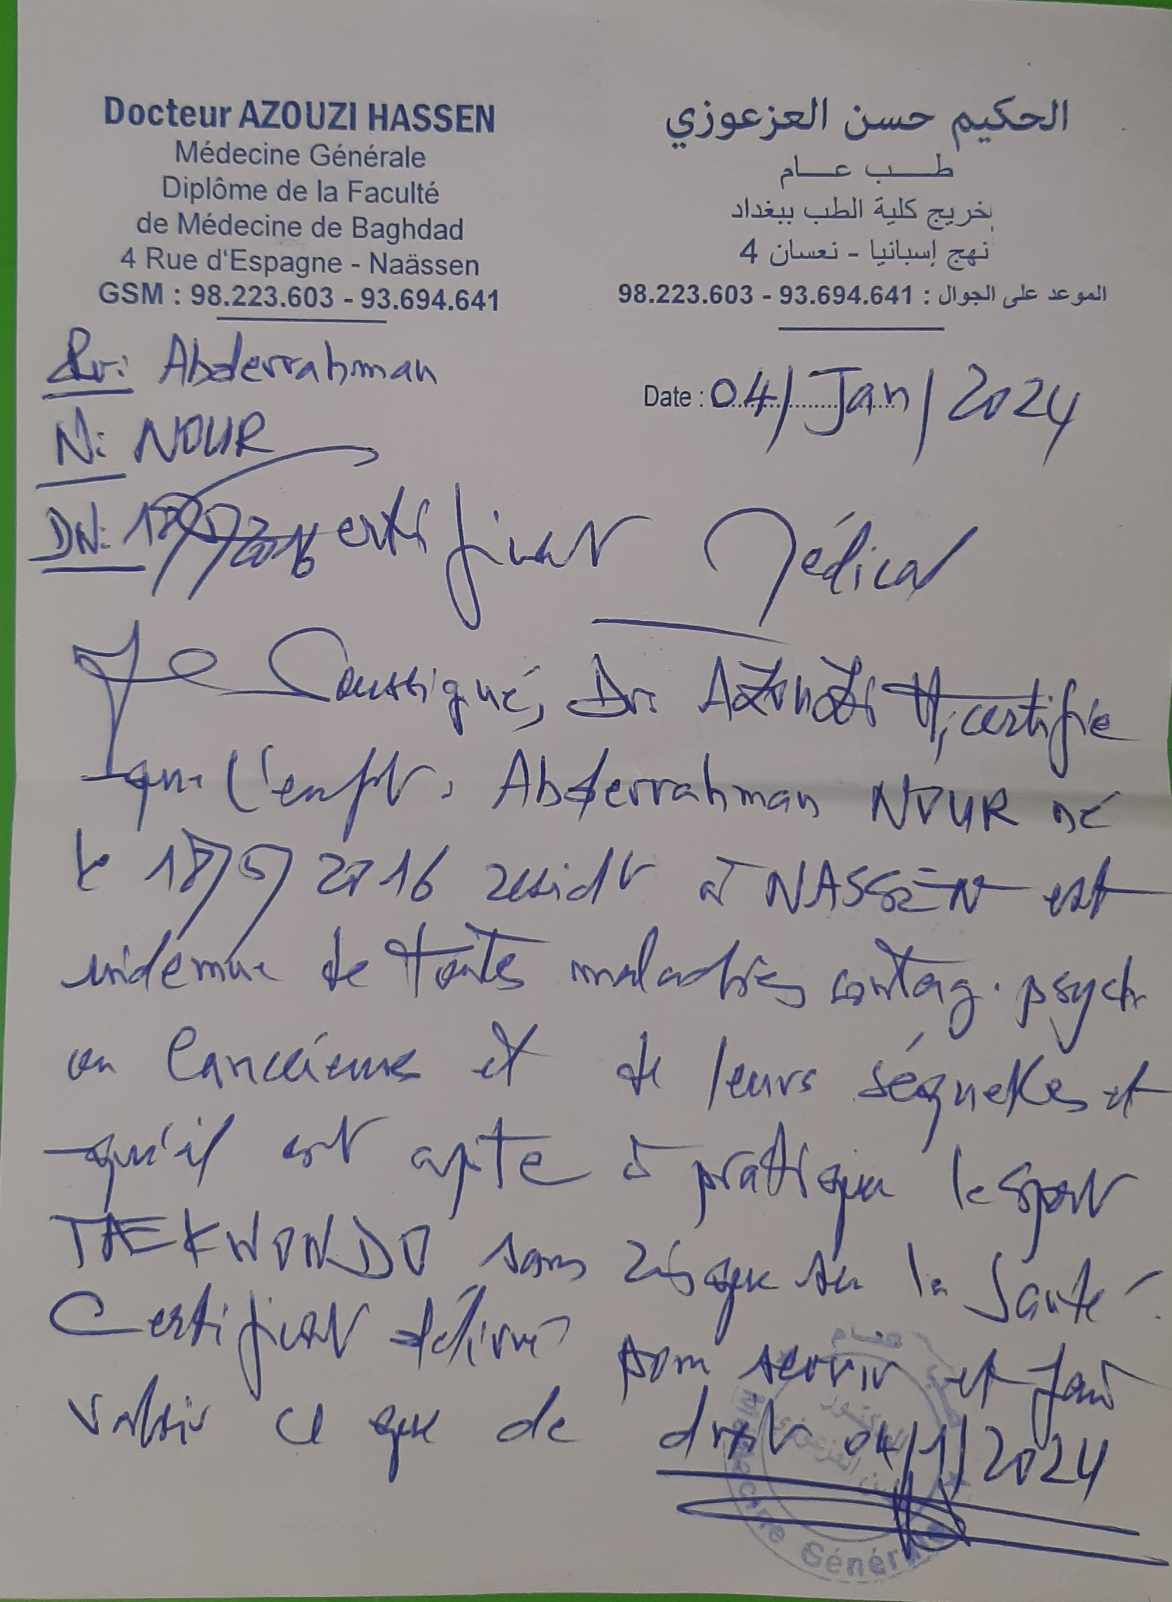 Docteur AZOUZI HASSEN
Médecine Générale
Diplôme de la Faculté
de Médecine de Baghdad
4 Rue d'Espagne - Naässen
GSM : 98.223.603 - 93.694.641
الحكيم حسن العزعوزي
طب عام
خريج كلية الطب ببغداد
4 نهج إسبانيا - نعسان
الموعد على الجوال : 93.694.641 - 98.223.603
Date : 04/Jan/2024
Pr: Abderrahman
N: NOUR
DN: 18/5/2016
Certificat Médical
Je Soussigné, Dr. AZOUZI H, certifie
que l'enft. Abderrahman NOUR né
le 18/5/2016 residt à NASSEN est
indemne de toutes maladies contag. psych
ou Cancéreuse et de leurs séquelles et
qu'il est apte à pratiquer le sport
TAEKWONDO sans risque sur la Santé.
Certificat délivré pour servir et faire
valoir ce que de droit 04/1/2024
Médecine Générale